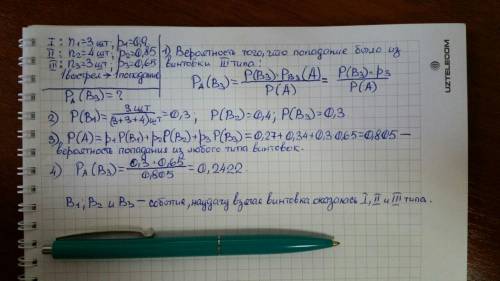 I : n1=3 шт, p1=0,9
II : n2=4 шт, p2=0,85
III : n3=3 шт, p3=0,65
1 выстрел → 1 попадание
PA(B3) = ?
1) Вероятность того, что попадание было из
винтовки III типа :
PA(B3) = P(B3)·PB3(A) / P(A) = P(B3)·p3 / P(A)
2) P(B1) = 3 шт / (3+3+4) шт = 0,3 ; P(B2) = 0,4 ; P(B3) = 0,3
3) P(A) = p1 P(B1) + p2 P(B2) + p3 P(B3) = 0,27 + 0,34 + 0,3·0,65 = 0,805 —
вероятность попадания из любого типа винтовок.
4) PA(B3) = 0,3·0,65 / 0,805 = 0,2422
B1, B2 и B3 — события, наудачу взятая винтовка оказалась I, II и III типа.
UZTELECOM